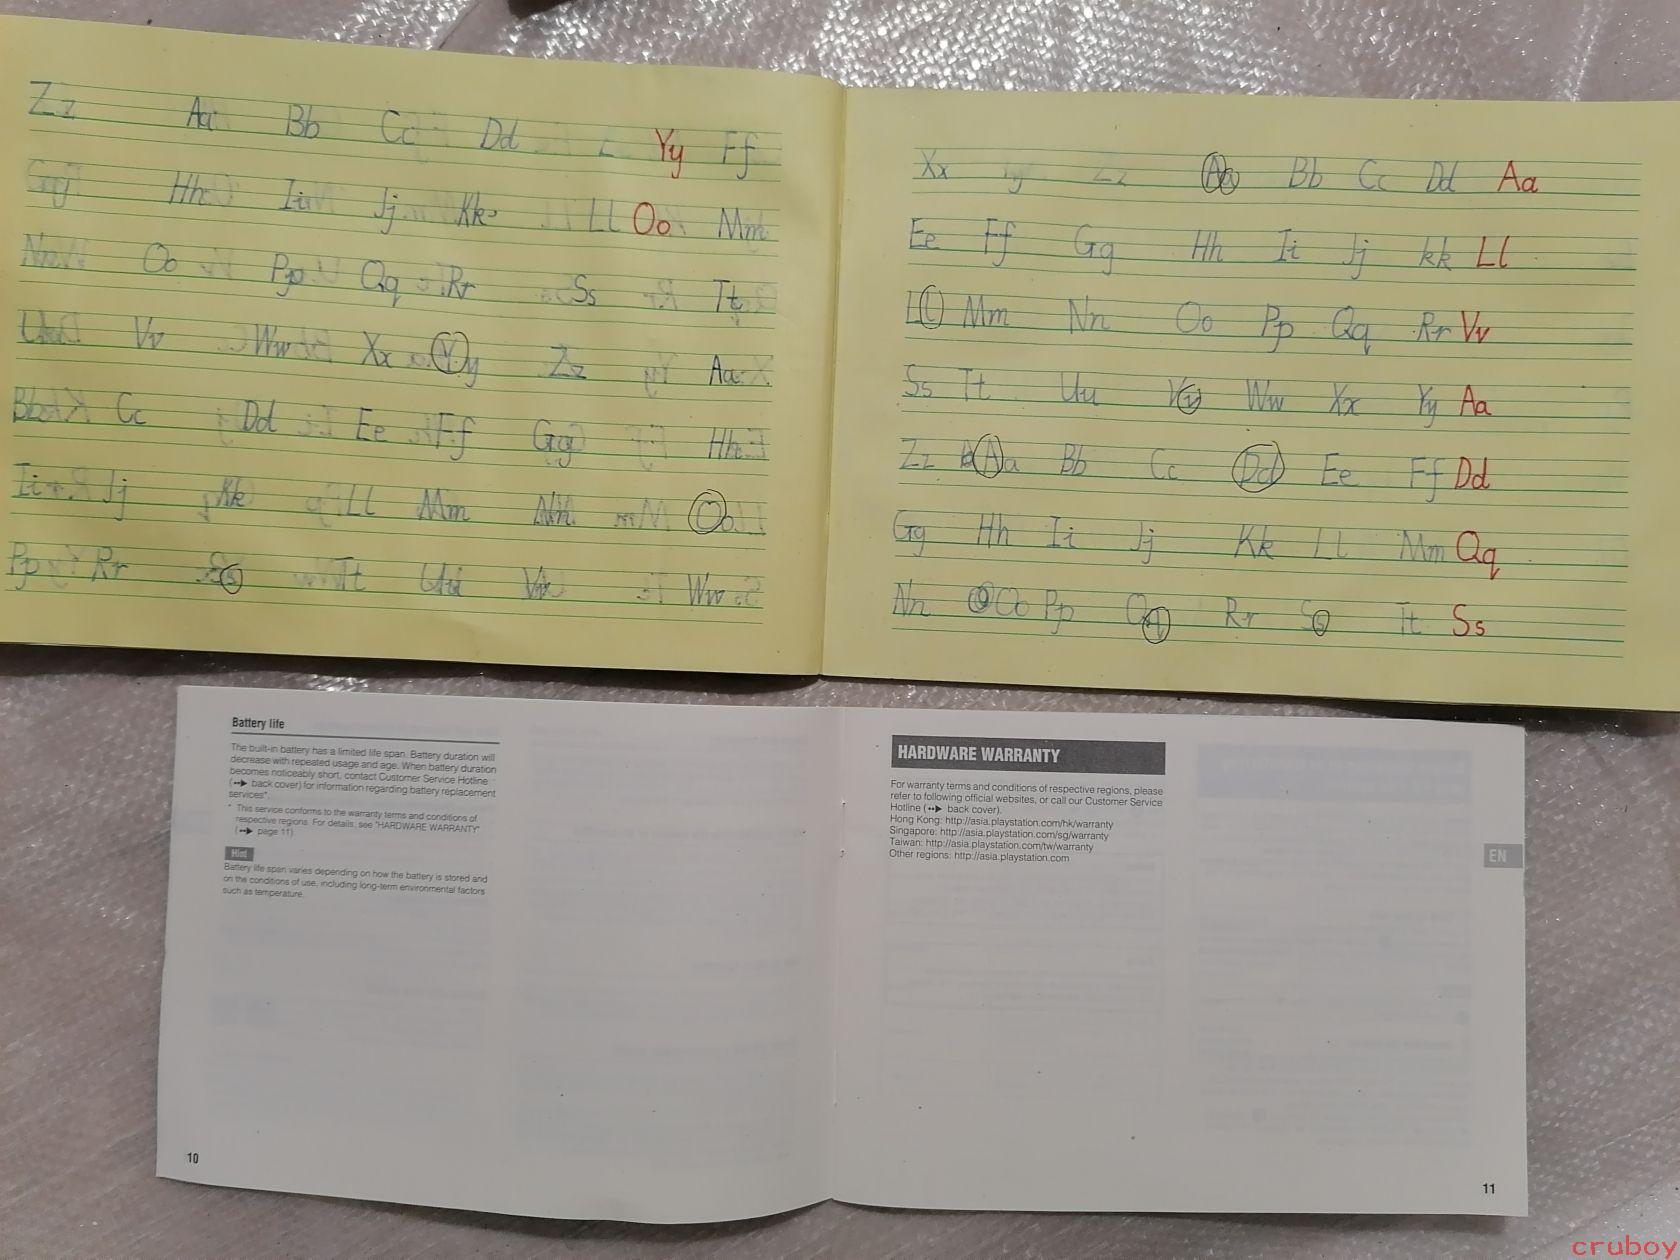 Zz Aa Bb Cc Dd Yy Ff
Gg Hh Ii Jj Kk Ll Oo Mm
Nn Oo Pp Qq Rr Ss Tt
Uu Vv Ww Xx Yy Zz Aa
Bb Cc Dd Ee Ff Gg Hh
Ii Jj Kk Ll Mm Nn Oo
Pp Rr Ss Tt Uu Ww
Xx Yy Zz Aa Bb Cc Dd Aa
Ee Ff Gg Hh Ii Jj kk Ll
Ll Mm Nn Oo Pp Qq Rr Vv
Ss Tt Uu Vv Ww Xx Yy Aa
Zz Aa Bb Cc Dd Ee Ff Dd
Gg Hh Ii Jj Kk Ll Mm Qq
Nn Oo Pp Qq Rr Ss Tt Ss
Battery life
The built-in battery has a limited life span. Battery duration will
decrease with repeated usage and age. When battery duration
becomes noticeably short, contact Customer Service Hotline
( back cover) for information regarding battery replacement
services*.
* This service conforms to the warranty terms and conditions of
respective regions. For details, see "HARDWARE WARRANTY"
( page 11).
Hint
Battery life span varies depending on how the battery is stored and
on the conditions of use, including long-term environmental factors
such as temperature.
10
HARDWARE WARRANTY
For warranty terms and conditions of respective regions, please
refer to following official websites, or call our Customer Service
Hotline ( back cover).
Hong Kong: http://asia.playstation.com/hk/warranty
Singapore: http://asia.playstation.com/sg/warranty
Taiwan: http://asia.playstation.com/tw/warranty
Other regions: http://asia.playstation.com
EN
11
cruboy